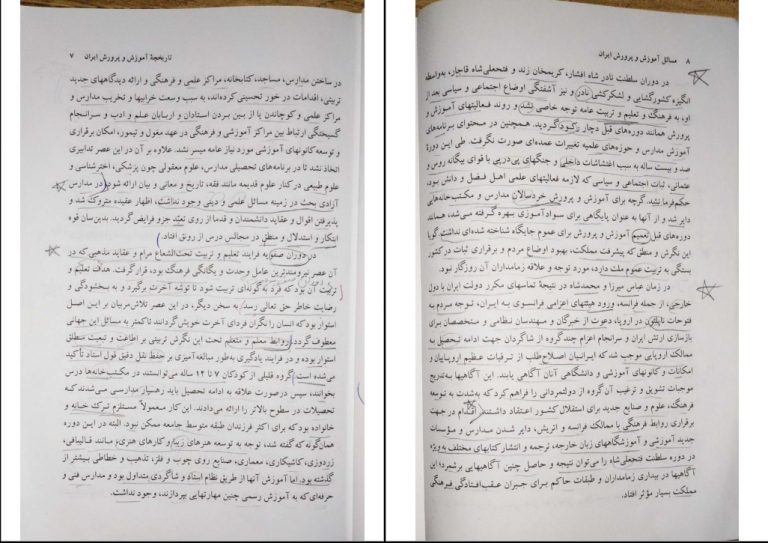 ۸ مسائل آموزش و پرورش ایران
در دوران سلطنت نادر شاه افشار، کریمخان زند و فتحعلی‌شاه قاجار، به‌واسطه
انگیزه کشورگشایی و لشکرکشی نادر و نیز آشفتگی اوضاع اجتماعی و سیاسی بعد از
او، به فرهنگ و تعلیم و تربیت عامه توجه خاصی نشد و روند فعالیتهای آموزش و
پرورش همانند دوره‌های قبل دچار رکود گردید. همچنین در محتوای برنامه‌های
آموزش مدارس و حوزه‌های علمیه تغییرات عمده‌ای صورت نگرفت. طی این دورهٔ
صد و بیست ساله به سبب اغتشاشات داخلی و جنگهای پی‌درپی با قوای بیگانه روس و
عثمانی، ثبات اجتماعی و سیاسی که لازمه فعالیتهای علمی اهل فضل و دانش بود،
حکم‌فرما نبود. گرچه برای آموزش و پرورش خردسالان مدارس و مکتب‌خانه‌هایی
دایر شد و از آنها به عنوان پایگاهی برای سوادآموزی بهره گرفته می‌شد، همانند
دوره‌های قبل تعمیم آموزش و پرورش برای عموم جایگاه شناخته شده‌ای نداشت گویا
این نگرش و منطق که پیشرفت مملکت، بهبود اوضاع مردم و برقراری ثبات در کشور
بستگی به تربیت عموم ملت دارد، مورد توجه و علاقه زمامداران آن روزگار نبود.
در زمان عباس میرزا و محمدشاه در نتیجهٔ تماسهای مکرر دولت ایران با دول
خارجی، از جمله فرانسه، ورود هیئتهای اعزامی فرانسوی به ایران، توجه مردم به
فتوحات ناپلئون در اروپا، دعوت از خبرگان و مهندسان نظامی و متخصصان برای
بازسازی ارتش ایران و سرانجام اعزام چند گروه از شاگردان جهت ادامه تحصیل به
ممالک اروپایی موجب شد که ایرانیان اصلاح‌طلب از ترقیات عظیم اروپاییان و
امکانات و کانونهای آموزشی و دانشگاهی آنان آگاهی یابند. این آگاهیها به‌تدریج
موجبات تشویق و ترغیب آن گروه از دولتمردانی را فراهم کرد که به‌شدت به توسعه
فرهنگ، علوم و صنایع جدید برای استقلال کشور اعتقاد داشتند. اقدام در جهت
برقراری روابط فرهنگی با ممالک فرانسه و اتریش، دایر شدن مدارس و مؤسسات
جدید آموزشی و آموزشگاههای زبان خارجه، ترجمه و انتشار کتابهای مختلف به ویژه
در دوره سلطنت فتحعلی‌شاه را می‌توان نتیجه و حاصل چنین آگاهیهایی برشمرد؛ این
آگاهیها در بیداری زمامداران و طبقات حاکم برای جبران عقب‌افتادگی فرهنگی
مملکت بسیار مؤثر افتاد.
تاریخچهٔ آموزش و پرورش ایران ۷
در ساختن مدارس، مساجد، کتابخانه، مراکز علمی و فرهنگی و ارائه دیدگاههای جدید
تربیتی، اقدامات در خور تحسینی کرده‌اند، به سبب وسعت خرابیها و تخریب مدارس و
مراکز علمی و کوچاندن یا از بین بردن استادان و اربابان علم و ادب و سرانجام
گسیختگی ارتباط بین مراکز آموزشی و فرهنگی در عهد مغول و تیمور، امکان برقراری
و توسعه کانونهای آموزشی مورد نیاز عامه میسر نشد. علاوه بر آن در این عصر تدابیری
اتخاذ نشد تا در برنامه‌های تحصیلی مدارس، علوم معقولی چون پزشکی، اخترشناسی و
علوم طبیعی در کنار علوم قدیمه مانند فقه، تاریخ و معانی و بیان ارائه شود. در مدارس
آزادی بحث در زمینه مسائل علمی و دینی وجود نداشت، اظهار عقیده متروک شد و
پذیرفتن اقوال و عقاید دانشمندان و قدما از روی تعبد جزو فرایض گردید. بدین‌سان قوه
ابتکار و استدلال و منطق در مجالس درس از رونق افتاد.
در دوران صفویه فرایند تعلیم و تربیت تحت‌الشعاع مرام و عقاید مذهبی که در
آن عصر نیرومندترین عامل وحدت و یگانگی فرهنگ بود، قرار گرفت. هدف تعلیم و
تربیت آن بود که فرد به‌گونه‌ای تربیت شود تا توشه آخرت برگیرد و به بخشودگی و
رضایت خاطر حق تعالی رسد. به سخن دیگر، در این عصر تلاش مربیان بر این اصل
استوار بود که انسان را نگران فردای آخرت خویش گردانند تا کمتر به مسائل این جهانی
معطوف گردد. روابط معلم و متعلم تحت این نگرش تربیتی بر اطاعت و تبعیت منطلق
استوار بوده و در فرایند یادگیری به‌طور مبالغه آمیزی بر حفظ نقل دقیق قول استاد تأکید
می‌شده است. گروه قلیلی از کودکان ۷ تا ۱۲ ساله می‌توانستند در مکتب‌خانه‌ها درس
بخوانند، سپس درصورت علاقه به ادامه تحصیل باید رهسپار مدارسی می‌شدند که
تحصیلات در سطوح بالاتر را ارائه می‌دادند. این کار معمولاً مستلزم ترک خانه و
خانواده بود که برای اکثر فرزندان طبقه متوسط جامعه ممکن نبود. البته در این دوره
همان‌گونه که گفته شد، توجه به توسعه هنرهای زیبا و کارهای هنری، مانند قالیبافی،
زردوزی، کاشیکاری، معماری، صنایع روی چوب و فلز، تذهیب و خطاطی بیشتر از
گذشته بود. اما آموزش آنها از طریق نظام استاد و شاگردی متداول بود و مدارس فنی و
حرفه‌ای که به آموزش رسمی چنین مهارتهایی بپردازند، وجود نداشت.